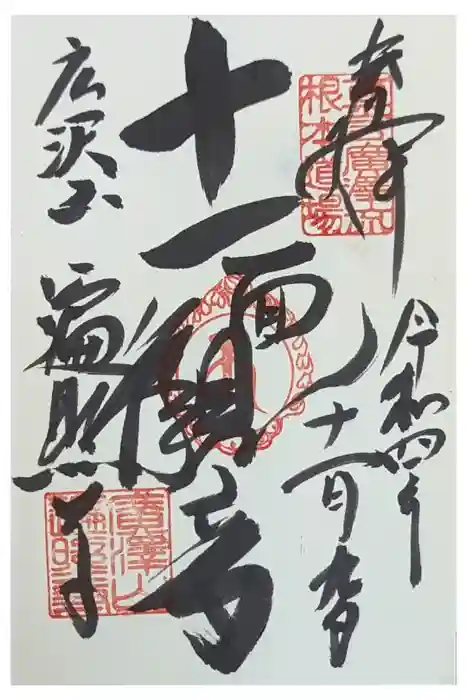 奉拝
真言廣澤流
根本道場
令和四年
十一月九日
十一面観音
広沢山
遍照寺
廣澤山